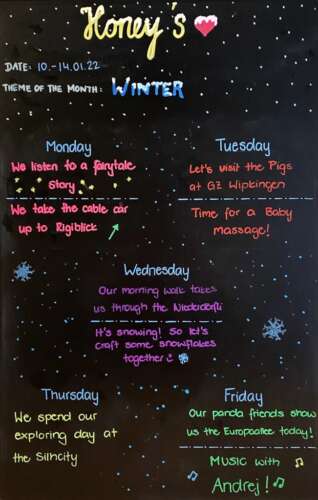 Honey's
DATE: 10.-14.01.22
THEME OF THE MONTH: WINTER
Monday
We listen to a fairytale
Story
We take the cable car
up to Rigiblick
Tuesday
Let's visit the Pigs
at GZ Wipkingen
Time for a Baby
massage!
Wednesday
Our morning walk takes
us through the Niederdörfli
It's snowing! So let's
craft some snowflakes
together
Thursday
We spend our
exploring day at
the Sihlcity
Friday
Our panda friends show
us the Europaallee today!
MUSIC with
Andrej!